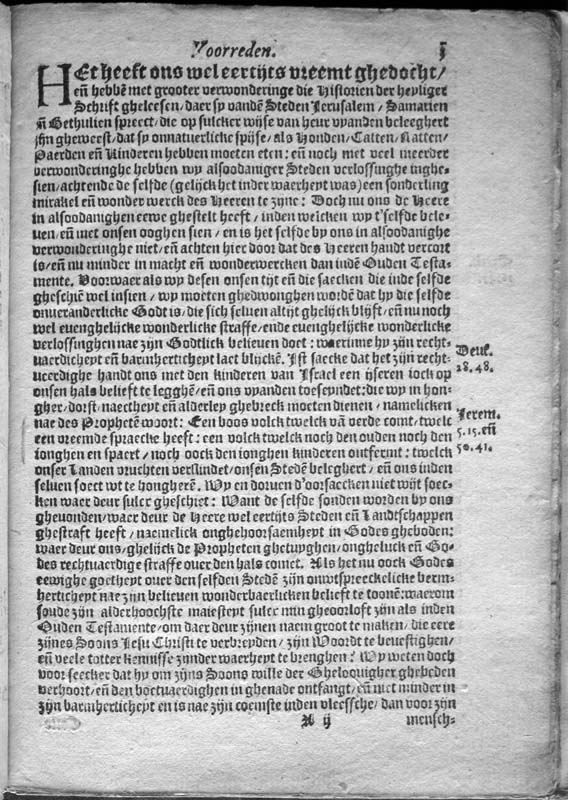 Voorreden.
HEt heeft ons wel eertijts vreemt ghedocht/
eñ hebbẽ met grooter verwonderinge die Historien der heyliger
Schrift ghelesen/daer sy vandẽ Steden Jerusalem/Samarien
eñ Bethulien spreect/die op sulcker wijse van heur vyanden beleeghert
zijn gheweest/dat sy onnatuerlicke spijse/als Honden/Catten/Ratten/
Paerden eñ Kinderen hebben moeten eten: eñ noch met veel meerder
verwonderinghe hebben wy alsoodaniger Steden verlossinghe inghe-
sien/achtende de selfde (gelijck het inder waerheyt was) een sonderling
mirakel eñ wonder werck des Heeren te zijne: Doch nu ons de Heere
in alsoodanighen eewe ghestelt heeft/inden welcken wy t'selfde bele-
uen/eñ met onsen ooghen sien/en is het selfde by ons in alsoodanighe
verwonderinghe niet/eñ achten hier door dat des Heeren handt vercort
is/eñ nu minder in macht eñ wonderwercken dan indẽ Ouden Testa-
mente. Voorwaer als wy desen onsen tijt eñ die saecken die inde selfde
gheschiẽ wel insien/wy moeten ghedwonghen wordẽ dat hy die selfde
onueranderlicke Godt is/die sich seluen altijt ghelijck blijft/eñ nu noch
wel euenghelijcke wonderlicke straffe/ende euenghelijcke wonderlicke
verlossinghen nae zijn Godtlick belieuen doet: waerinne hy zijn recht-
uaerdicheyt eñ barmherticheyt laet blijckẽ. Ist saecke dat het zijn recht-
ueerdighe handt ons met den kinderen van Israel een ijseren iock op
onsen hals belieft te legghẽ/eñ ons vyanden toeseyndet: die wy in hon-
gher/dorst/naectheyt eñ alderley ghebreck moeten dienen/namelicken
nae des Prophetẽ woort: Een boos volck twelck vã verde comt/twelc
een vreemde spraecke heeft: een volck twelck noch den ouden noch den
ionghen en spaert/noch oock den ionghen kinderen ontfermt: twelck
onser Landen vruchten verslindt/onsen Stedẽ beleghert/eñ ons inden
seluen soect wt te hongherẽ. Wy en doruen d'oorsaecken niet wijt soec-
ken waer deur sulcx gheschiet: Want de selfde sonden worden by ons
gheuonden/waer deur de Heere wel eertijts Steden eñ Landtschappen
ghestraft heeft/naemelick onghehoorsaemheyt in Godes gheboden:
waer deur ons/ghelijck de Propheten ghetuyghen/ongheluck eñ Go-
des rechtuaerdige straffe ouer den hals comet. Als het nu oock Godes
eewighe goetheyt ouer den selfden Stedẽ zijn onwtspreeckelicke berm-
herticheyt nae zijn belieuen wonderbaerlicken belieft te toonẽ: waerom
soude zijn alderhoochste maiesteyt sulcx min gheoorloft zijn als inden
Ouden Testamente/om daer deur zijnen naem groot te maken/die eere
zijnes Soons Jesu Christi te verbreyden/zijn Woordt te beuestighen/
eñ veele totter kennisse zijnder waerheyt te brenghen? Wy weten doch
voor seecker dat hy om zijns Soons wille der Ghelooуigher ghebeden
verhoort/eñ den boetuaerdighen in ghenade ontfangt/eñ niet minder in
zijn barmherticheyt en is nae zijn coemste inden vleessche/dan voor zijn
A ij
mensch-
Deut.
28.48.
Jerem.
5.15.eñ
50.41.